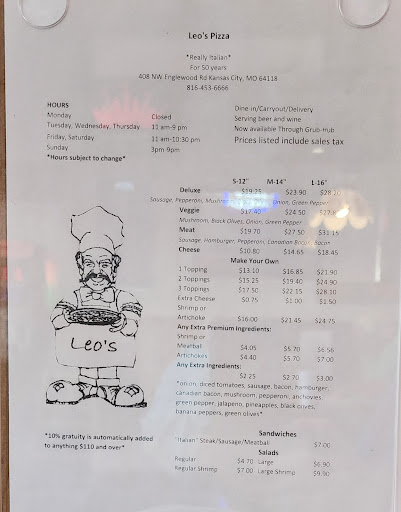 Leo's Pizza
*Really Italian*
For 50 years
408 NW Englewood Rd Kansas City, MO 64118
816-453-6666
HOURS
Monday Closed
Tuesday, Wednesday, Thursday 11 am-9 pm
Friday, Saturday 11 am-10:30 pm
Sunday 3pm-9pm
*Hours subject to change*
Dine-in/Carryout/Delivery
Serving beer and wine
Now available Through Grub-Hub
Prices listed include sales tax
S-12" M-14" L-16"
Deluxe $19.25 $23.90
Sausage, Pepperoni, Onion, Green Pepper
Veggie $17.40 $24.50
Mushroom, Black Olives, Onion, Green Pepper
Meat $19.70 $27.50 $31.15
Sausage, Hamburger, Pepperoni, Canadian Bacon, Bacon
Cheese $10.80 $14.65 $18.45
Make Your Own
1 Topping $13.10 $16.85 $21.90
2 Toppings $15.25 $19.40 $24.90
3 Toppings $17.50 $22.15 $28.10
Extra Cheese $0.75 $1.00 $1.50
Shrimp or
Artichoke $16.00 $21.45 $24.75
Any Extra Premium Ingredients:
Shrimp or
Meatball $4.05 $5.70 $6.56
Artichokes $4.40 $5.70 $7.00
Any Extra Ingredients:
$2.25 $2.70 $3.00
*onion, diced tomatoes, sausage, bacon, hamburger,
canadian bacon, mushroom, pepperoni, anchovies
green pepper, jalapeno, pineapples, black olives,
banana peppers, green olives*
Leo's
*10% gratuity is automatically added
to anything $110 and over*
Sandwiches
"Italian" Steak/Sausage/Meatball $7.00
Salads
Regular $4.70 Large $6.90
Regular Shrimp $7.00 Large Shrimp $9.90